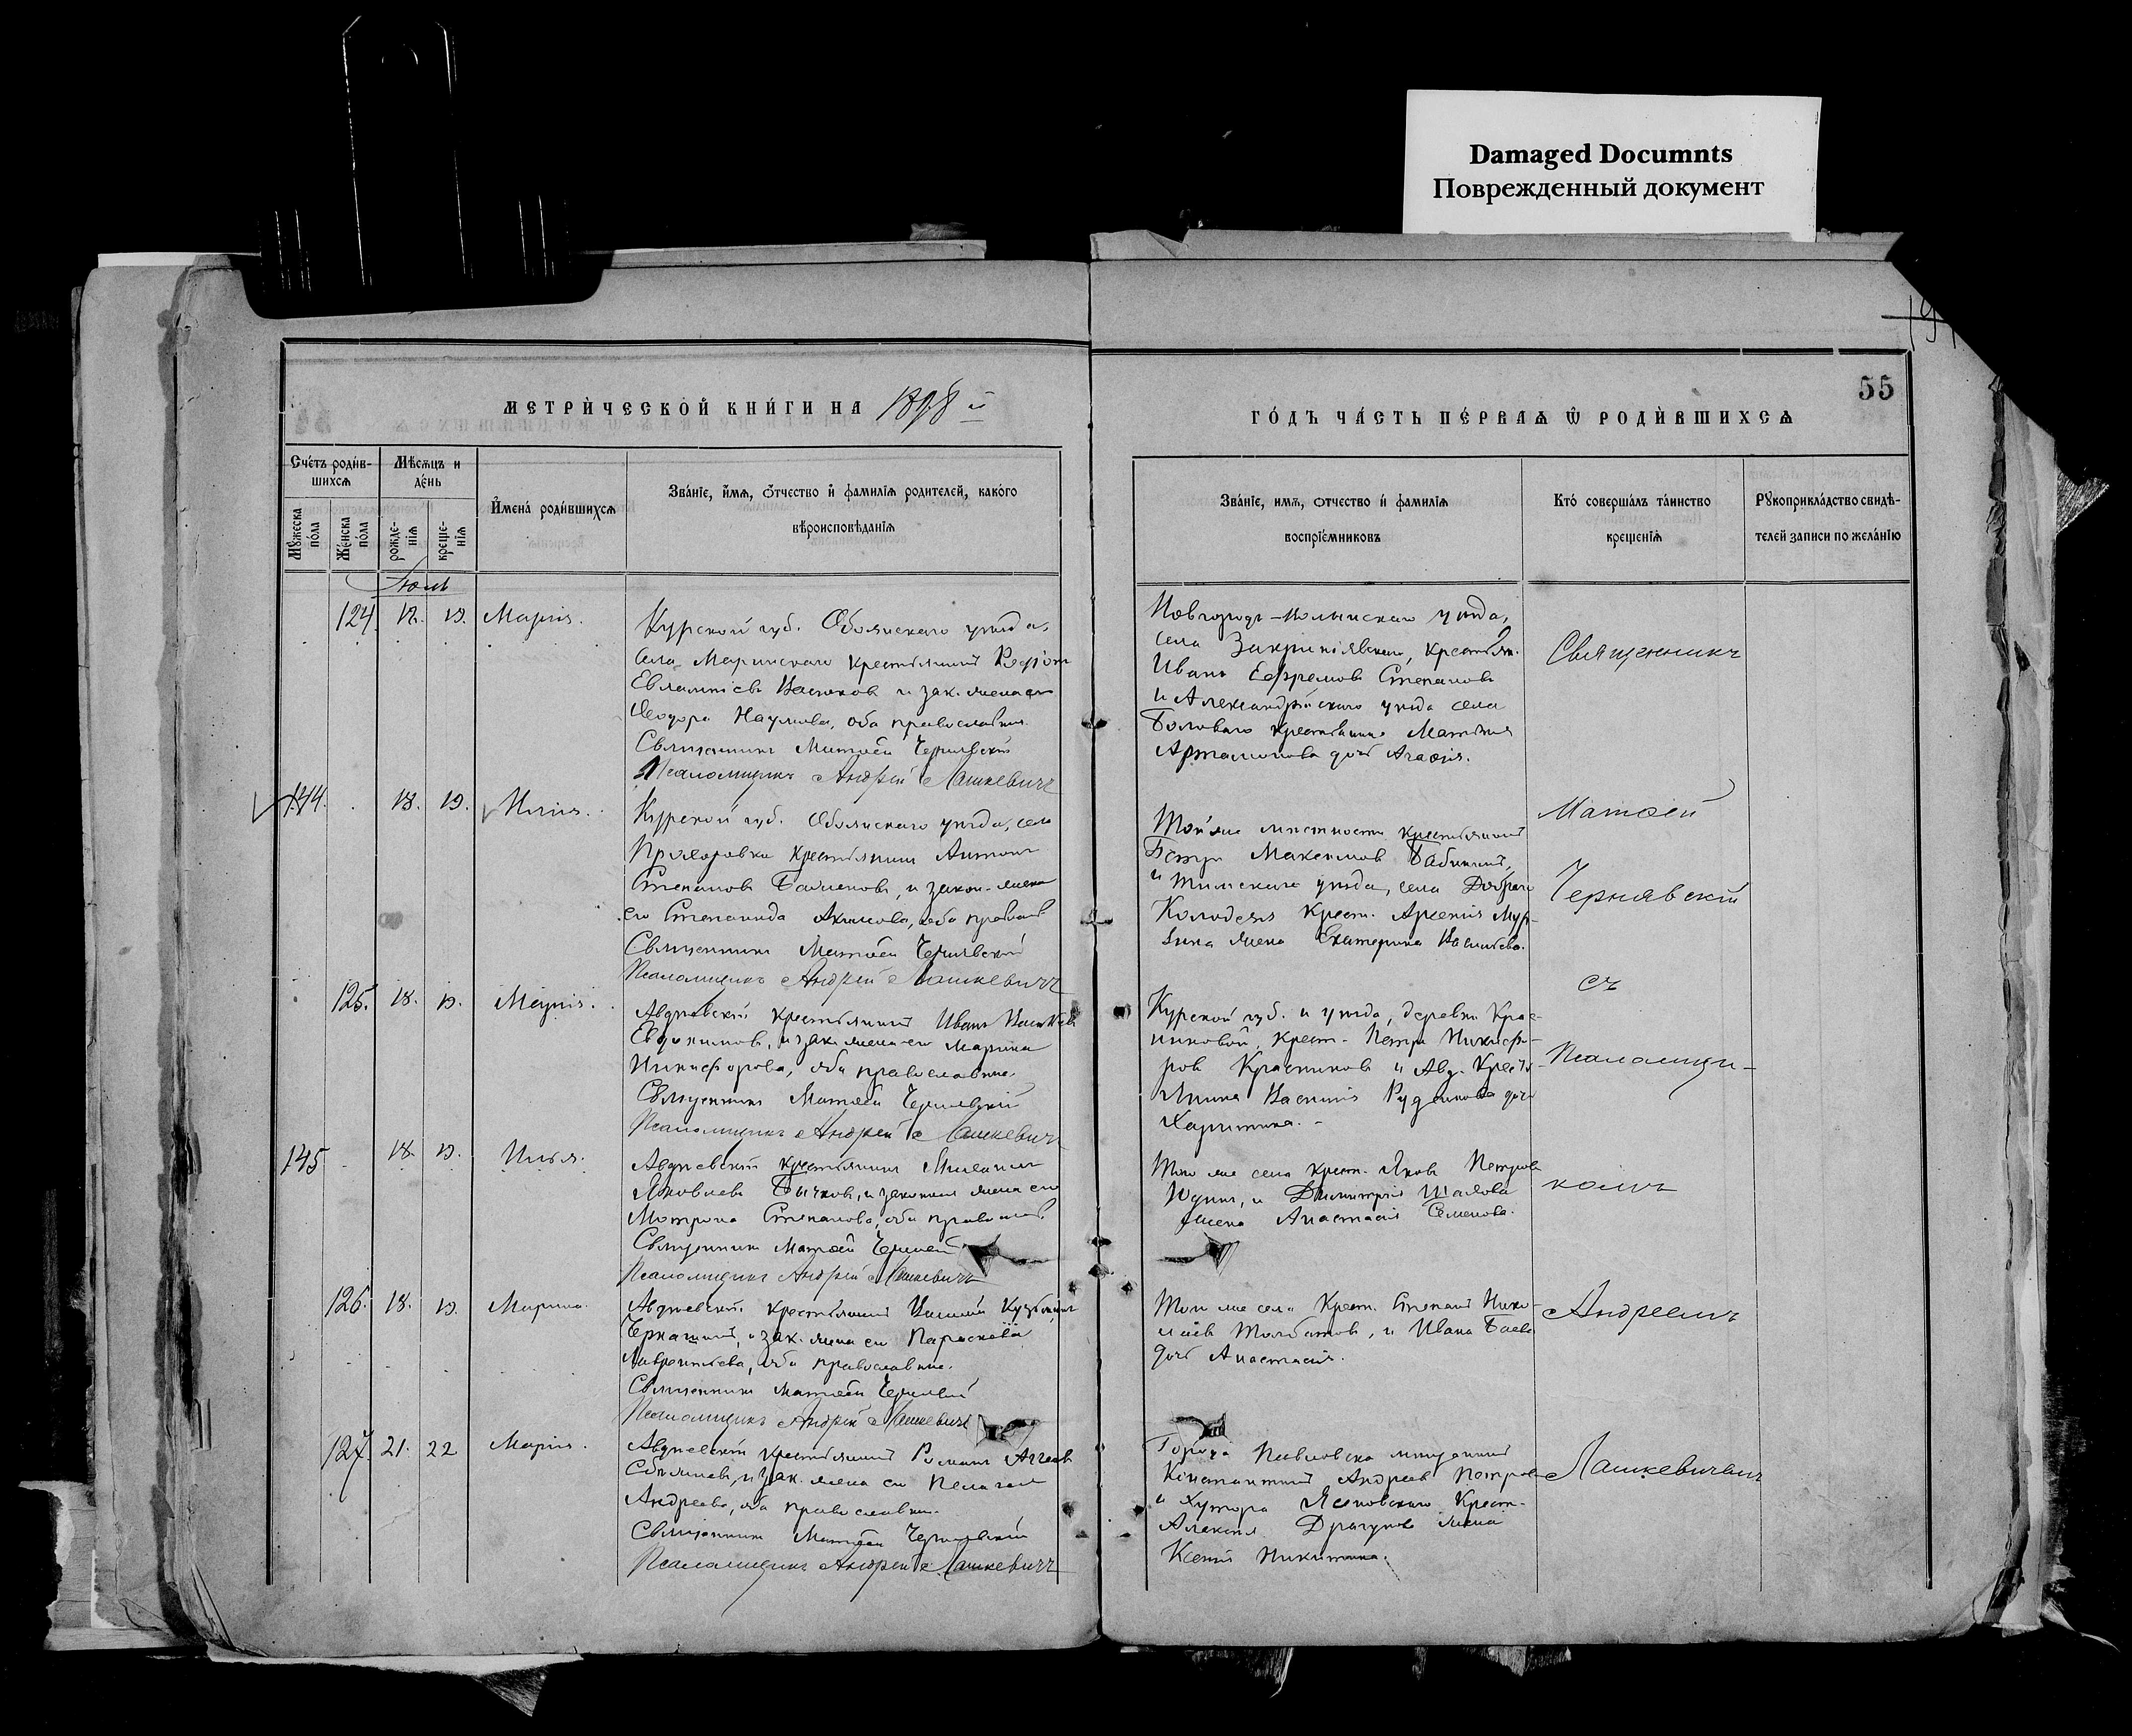 Damaged Documnts
Поврежденный документ
55
МЕТРИЧЕСКОЙ КНИГИ НА 1898 й
ГОДЪ ЧАСТЬ ПЕРВАЯ Ѿ РОДИВШИХСЯ
Счетъ родив-
шихся
Мужеска
пола
Женска
пола
Мѣсяцъ и
день
рожде-
нія
креще-
нія
Имена родившихся
Званіе, имя, отчество и фамилія родителей, какого
вѣроисповѣданія
Званіе, имя, отчество и фамилія
воспріемниковъ
Кто совершалъ таинство
крещенія
Рукоприкладство свидѣ-
телей записи по желанію
Іюль
124. Марія.
Курской губ. Обоянскаго уѣзда,
села Маринскаго крестьянинъ
Евлампіевъ и зак. жена его
Ѳеодора Наумова, оба православные.
Священникъ Матѳей Чернявскій
Псаломщикъ Андрей Лашкевичъ
Новгородъ-Волынскаго уѣзда,
села крестьян.
Иванъ Ефремовъ Степановъ
и Александрійскаго уѣзда села
крестьянина Матвѣя
Артамонова дочь Агаѳія.
144. 18. 19. Илія.
Курской губ. Обоянскаго уѣзда, села
крестьянинъ Антонъ
Степановъ и закон. жена
его Степанида Акимова, оба правосл.
Священникъ Матѳей Чернявскій
Псаломщикъ Андрей Лашкевичъ
Той же мѣстности крестьянинъ
Петръ Максимовъ
и Тимскаго уѣзда, села Добраго
Колодезя крест. Арсенія Мур-
зина жена Екатерина Васильева.
125. 18. 19. Марія.
Авдѣевскій крестьянинъ Иванъ
Евдокимовъ, и зак. жена его Марина
Никифорова, оба православные.
Священникъ Матѳей Чернявскій
Псаломщикъ Андрей Лашкевичъ
Курской губ. и уѣзда, деревни Крас-
никовой, крест. Петръ Никифо-
ровъ Красниковъ и Авд. кресть-
янина Василія Рудакова дочь
Харитина.
145 18. 19. Илья.
Авдѣевскій крестьянинъ Михаилъ
Яковлевъ Бычковъ, и законная жена его
Матрона Степанова, оба правосл.
Священникъ Матѳей
Псаломщикъ Андрей Лашкевичъ
Того же села крест. Яковъ Петровъ
Юдинъ, и Димитрія
жена Анастасія Семенова.
126. 18. 19. Марина.
Авдѣевскій крестьянинъ Василій
и зак. жена его Параскева
Лаврентьева, оба православные.
Священникъ Матѳей
Псаломщикъ Андрей Лашкевичъ
Того же села крест. Степанъ Нико-
лаевъ и Ивана Баева
дочь Анастасія.
127. 21. 22 Марія.
Авдѣевскій крестьянинъ Романъ
и зак. жена его Пелагея
Андреева, оба православные.
Священникъ Матѳей Чернявскій
Псаломщикъ Андрей Лашкевичъ
Города Павловска мѣщанинъ
Константинъ Андреевъ Петровъ
и хутора Ясеновскаго крест.
Алексѣя Драгунова жена
Ксенія Никитина.
Священникъ
Матѳей
Чернявскій
съ
Псаломщи-
комъ
Андреемъ
Лашкевичемъ